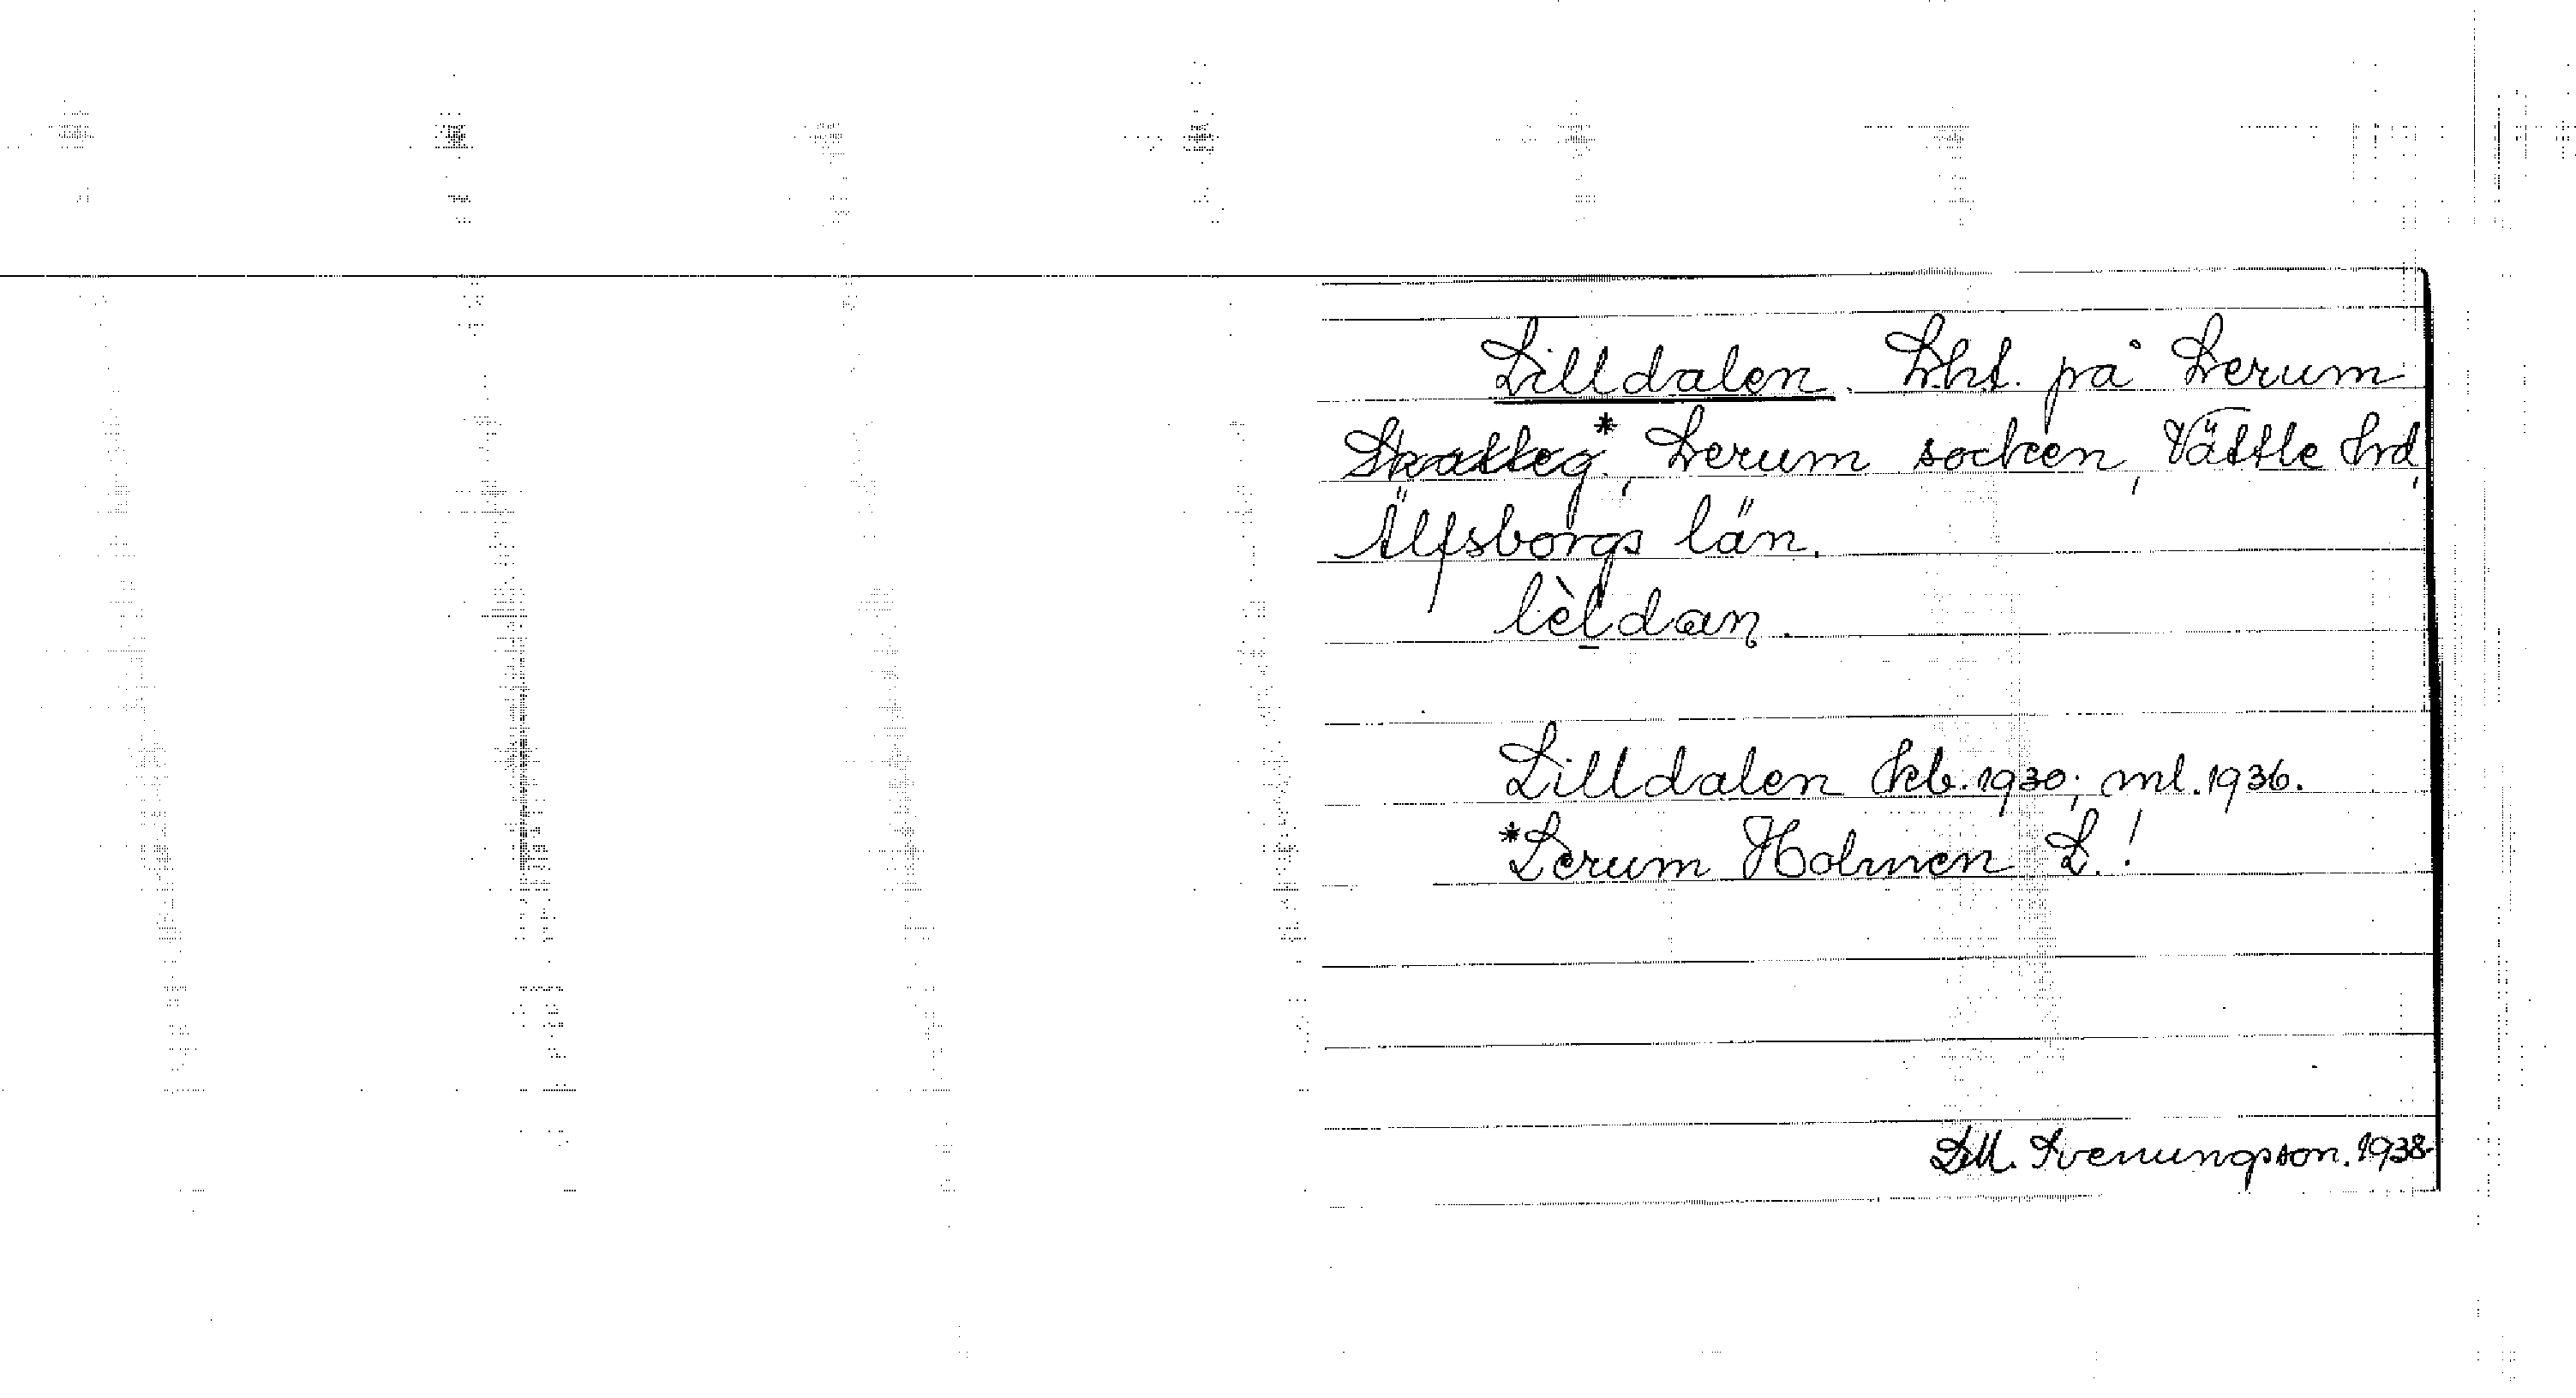 Lilldalen. Lht. på Lerum
Skatteg.*, Lerum socken, Vättle hd,
Älfsborgs län.
lèldan.
Lilldalen kb. 1930; ml. 1936.
*Lerum Holmen L.!
Svenungsson. 1938